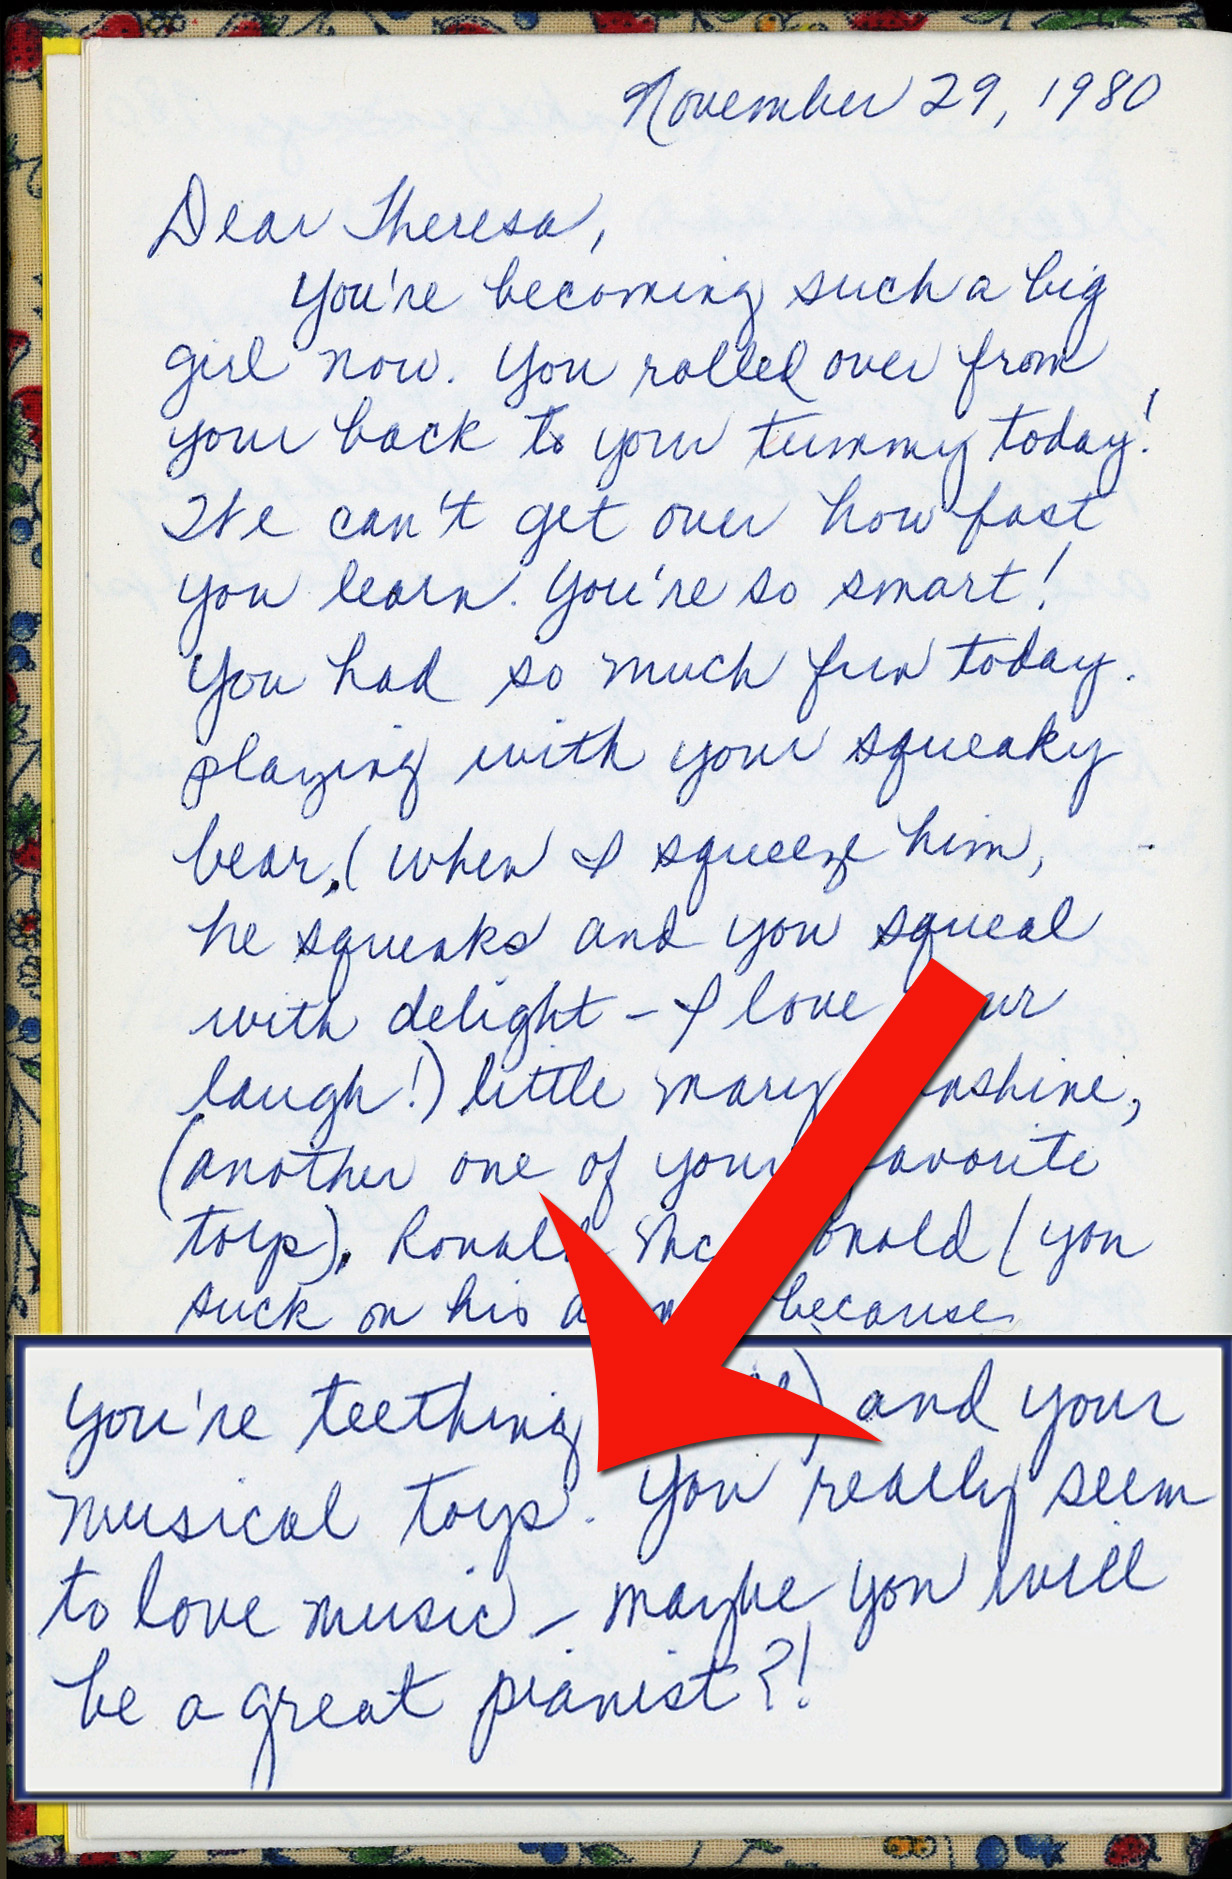 November 29, 1980
Dear Theresa,
You're becoming such a big
girl now. You rolled over from
your back to your tummy today!
We can't get over how fast
you learn. You're so smart!
You had so much fun today.
playing with your squeaky
bear, (when I squeeze him,
he squeaks and you squeal
with delight - I love
laugh!) little mary
(another one of your favorite
toys), Ronald McDonald (you
suck on his because
You're teething and your
musical toys. You really seem
to love music - maybe you will
be a great pianist?!